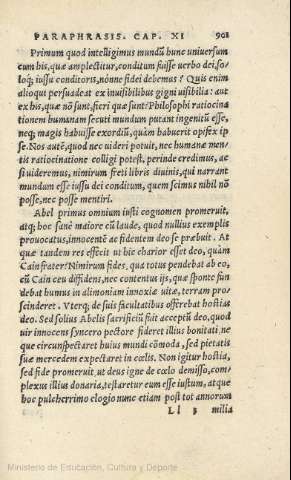 PARAPHRASIS. CAP. XI 901
Primum quod intelligimus mundũ hunc universum
cum his, quæ amplectitur, conditum fuisse verbo dei, so-
loq; iussu conditoris, nónne fidei debemus? Quis enim
alioqui persuadeat ex invisibilibus gigni visibilia: aut
ex his, quæ nõ sunt, fieri quæ sunt? Philosophi ratiocina
tionem humanam secuti mundum putant ingenitũ esse,
neq; magis habuisse exordiũ, quàm habuerit opifex ip
se. Nos autẽ, quod nec videri potuit, nec humanæ men-
tis ratiocinatione colligi potest, perinde credimus, ac
si videremus, nimirum freti libris divinis, qui narrant
mundum esse iussu dei conditum, quem scimus nihil nõ
posse, nec posse mentiri.
Abel primus omnium iusti cognomen promeruit,
atq; hoc sanè maiore cũ laude, quod nullius exemplis
provocatus, innocentẽ ac fidentem deo se præbuit. At
quæ tandem res effecit ut hic charior esset deo, quàm
Cain frater? Nimirum fides, qua totus pendebat ab eo,
cũ Cain ceu diffidens, nec contentus ijs, quæ sponte fun
debat humus in alimoniam innoxiæ vitæ, terram pro-
scinderet. Vterq; de suis facultatibus offerebat hostias
deo. Sed solius Abelis sacrificiũ fuit acceptũ deo, quod
vir innocens syncero pectore fideret illius bonitati, ne
que circunspectaret huius mundi cõmoda, sed pietatis
suæ mercedem expectaret in cœlis. Non igitur hostia,
sed fide promeruit, ut deus igne de cœlo demisso, com-
plexus illius donaria, testaretur eum esse iustum, atque
hoc pulcherrimo elogio nunc etiam post tot annorum
Ll 3 milia
Ministerio de Educación, Cultura y Deporte